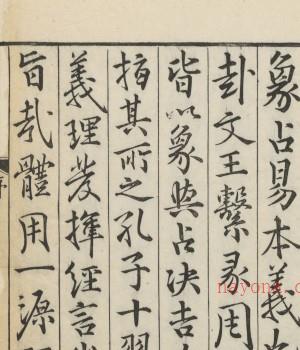 象占易本義
卦文王繫彖周
皆以象與占决吉
指其所之孔子十翼
義理發揮經言
旨哉體用一源
序
nayona.cn